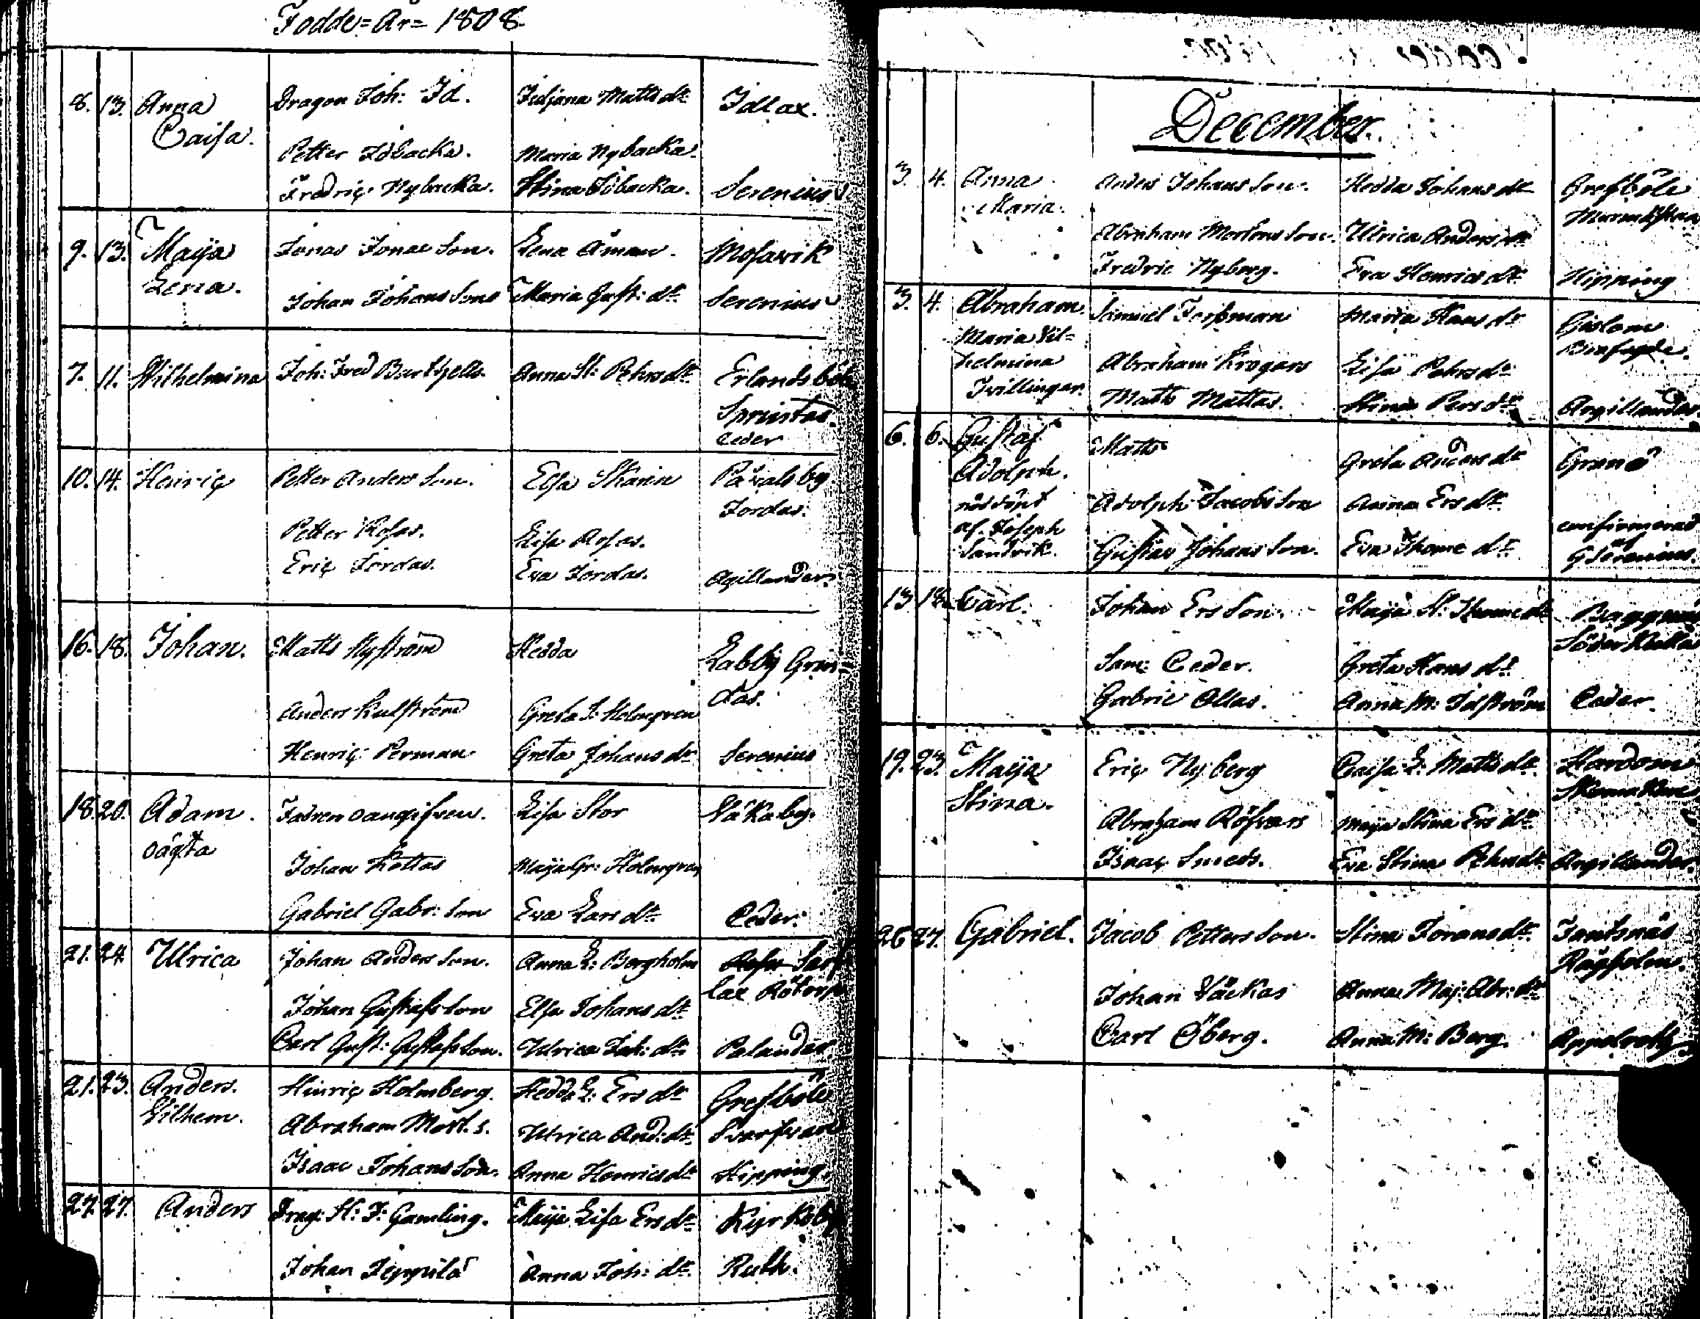 Födde = År = 1808
8. 13. Anna Dragon Joh: Id. Juljana Matts dr Idlax.
Caisa.
Petter Idbacka. Maria Nybacka.
Fredric Nybacka. Stina Idbacka. Serenius
9. 13. Maija Jonas Jonae Son. Lena Åman. Mosawik
Lena.
Johan Johans Sons Maria Gust: dr Serenius
7. 11. Wilhelmina Joh: Fred Anna St: Pehrs dr Erlandsböle
Sprintas.
Ceder
10. 14. Heinric Petter Anders Son. Påvalsby
Jordas.
Petter Rosas. Lisa Rosas.
Eric Jordas. Eva Jordas. Argillander
16. 18. Johan. Matts Nyström Hedda Labby Gran=
das.
Anders Greta L: Holmgren
Henric Perman Greta Johans dr Serenius
18. 20. Adam. Fadren oangifven. Lisa Stor Våkaby.
oägta
Johan Kottas Maija Gr: Holmgren
Gabriel Gabr: Son Eva Lars dr Ceder.
21. 24. Ulrica Johan Anders Son. Anna L: Bergholm
Johan Gustafs Son Elsa Johans dr
Carl Gust: Gustafs Son. Ulrica Joh: dr Palander
21. 23. Anders Hinric Holmberg. Hedda L: Ers dr Grefböle
Vilhem. Abraham Mårt. s. Ulrica And: dr
Isaac Johans Son. Anna Henrics dr Hipping.
27. 27. Anders Drag: H: J: Gamling. Maija Lisa Ers dr Kyrkoby
Johan Jeppila Anna Joh: dr Ruth.
December.
3. 4. Anna Anders Johans Son. Hedda Johans dr Grefböle
Maria.
Abraham Mortens Son. Ulrica Anders dr
Fredric Nyberg. Eva Henrics dr Hipping
3. 4. Abraham Samuel Forssman Maria Hans dr Gislom
Maria Vil=
helmina Abraham Krogars Lisa Pehrs dr
Tvillingar. Matts Mattas. Stina Pers dr Argillander
6. 6. Gustaf Matts Greta Anders dr Granö
Adolph.
nöddöpt Adolph Jacobs Son Anna Ers dr
af Joseph confirmerad
Sandvik. Gustav Johans Son. Eva Thome dr af
G Serenius.
13. 18. Carl. Johan Ers Son. Maija St: Thome dr
Söderkulla
Sam: Ceder. Greta Hans dr
Gabriel Ollas. Anna M: Idström Ceder.
19. 23. Maija Eric Nyberg Caisa L: Matts dr Hardom
Stina.
Abraham Röfvars Maija Stina Ers dr
Isaac Smeds. Eva Stina Pehrs dr Argillander
26 27. Gabriel. Jacob Petters Son. Stina Jorans dr Fantsnäs
Johan Väckas Anna Maj: Abr: dr
Carl Öberg. Anna M: Berg. Appelroth